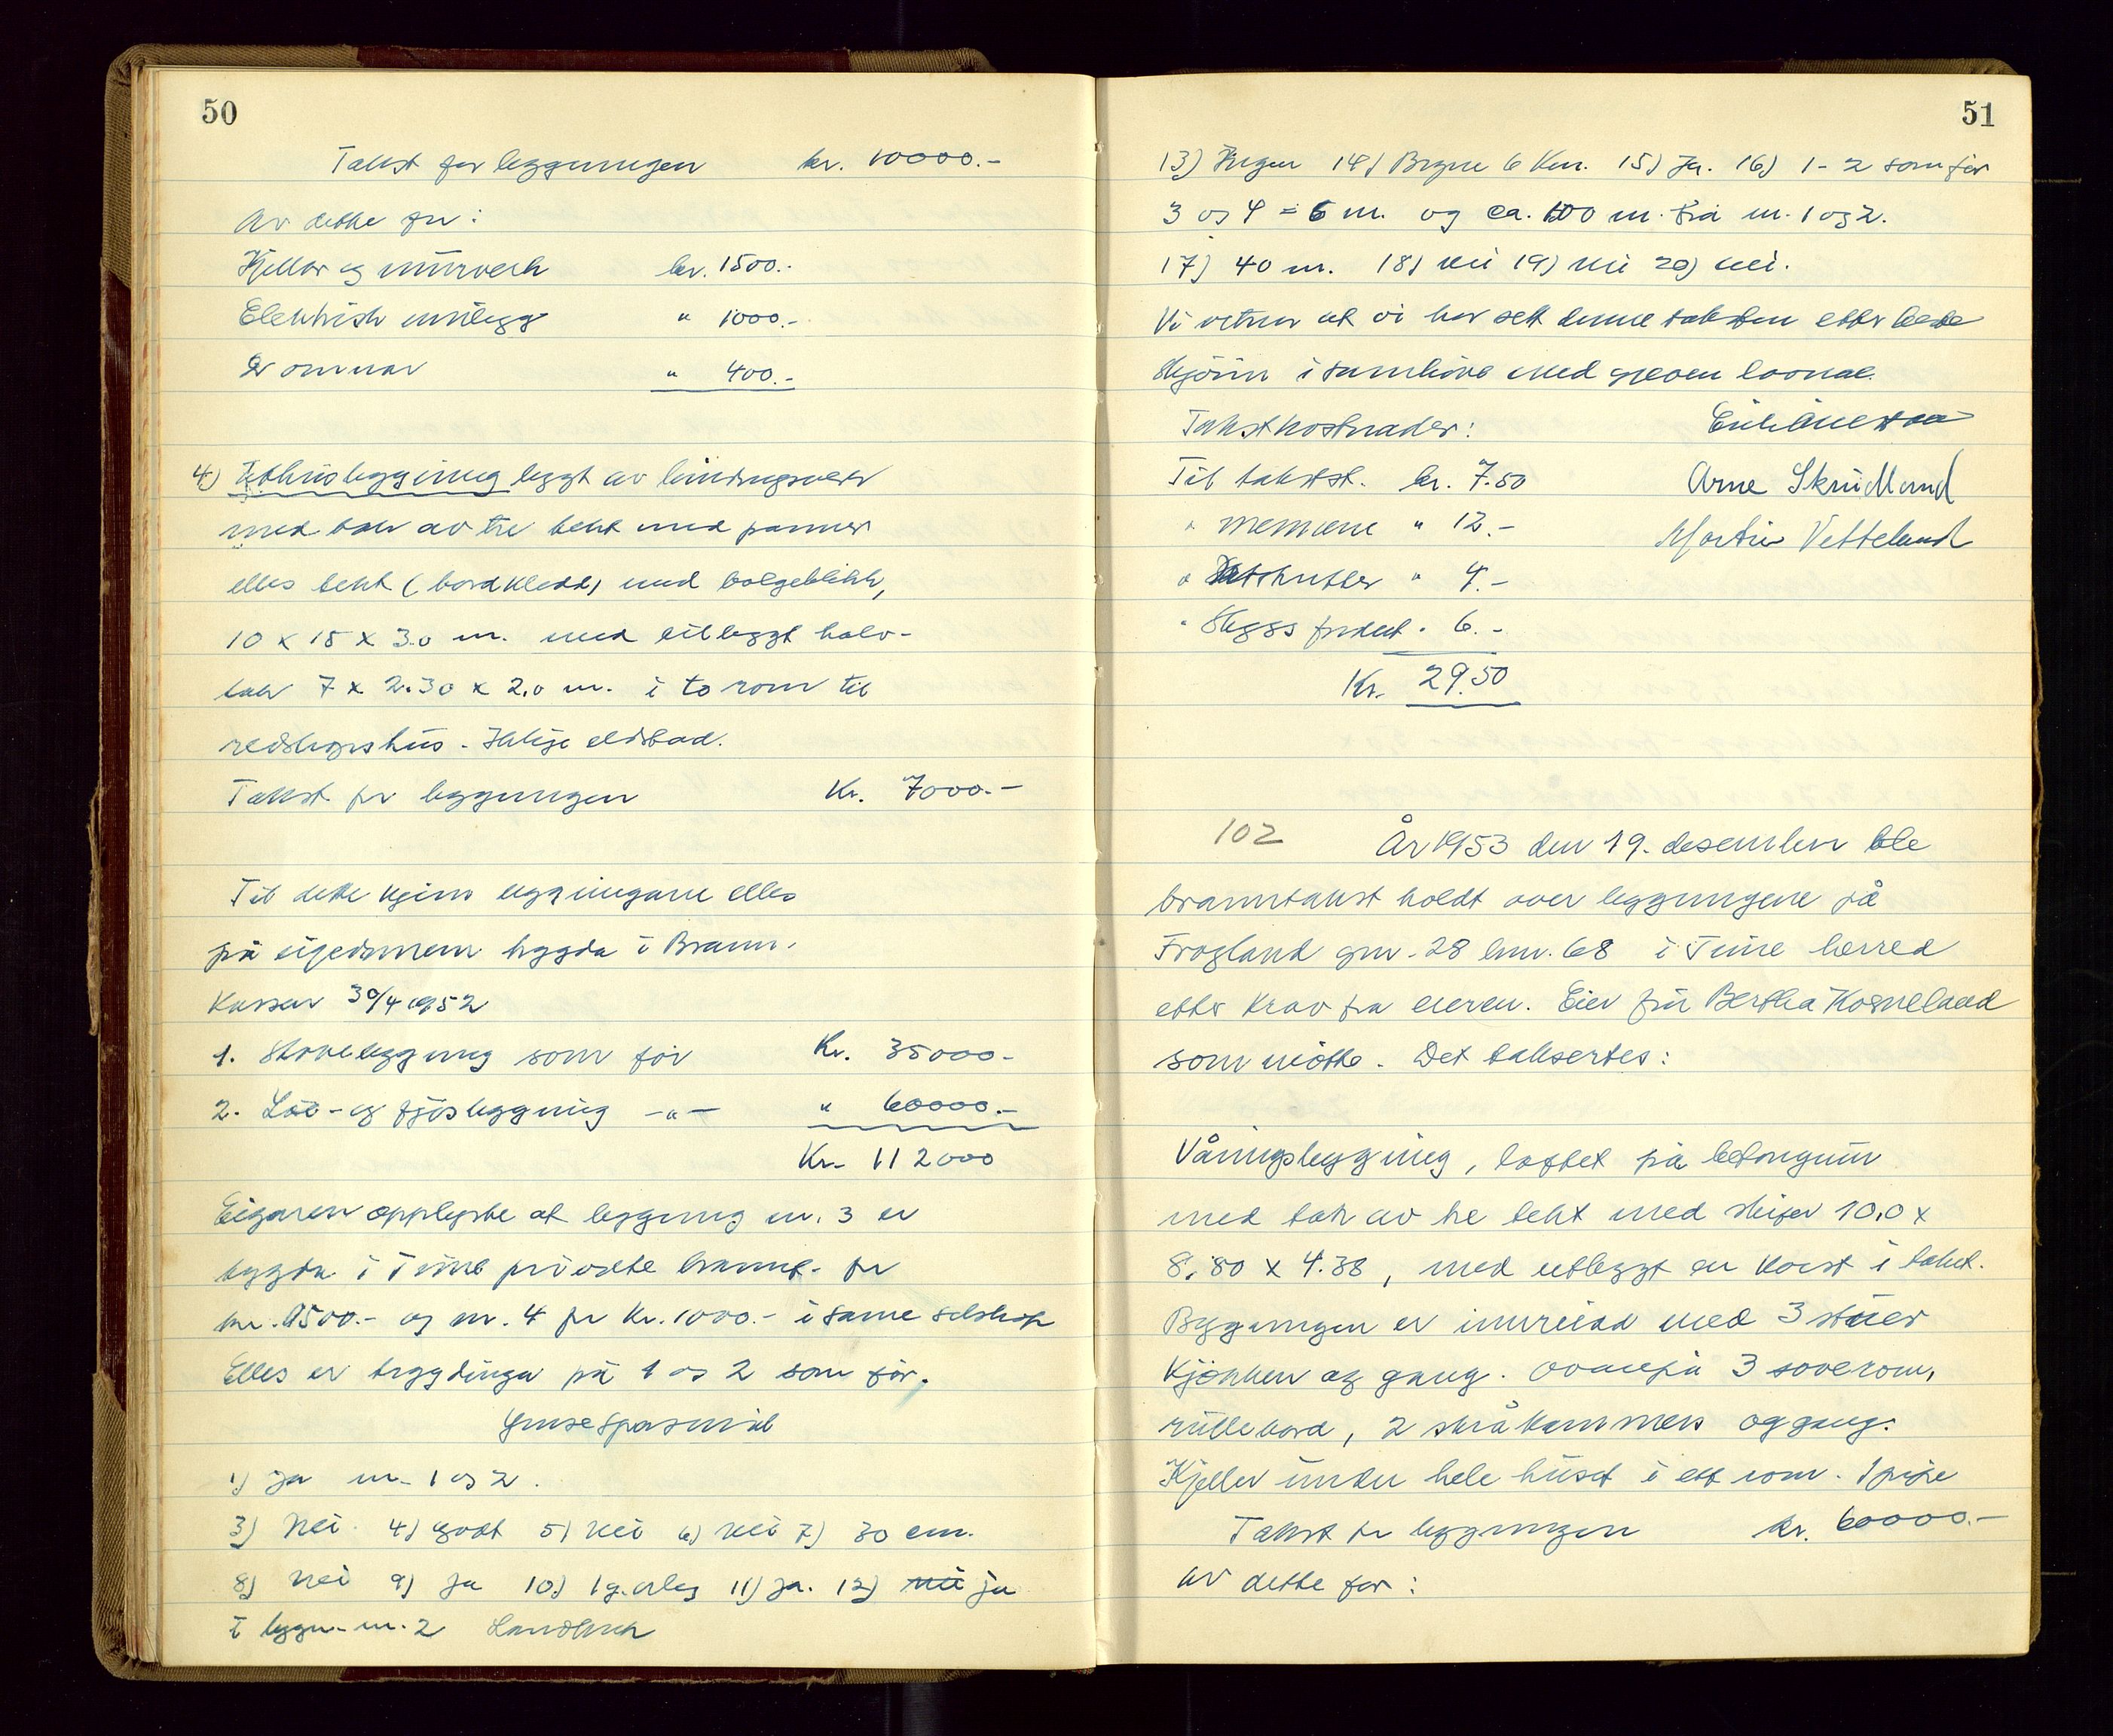 50
Takst for byggningen kr. 10000.-
Av dette for:
Kjellar og murverk kr. 1500.-
Elektrisk innlegg " 1000.-
2 omnar " 400.-
4) Uthusbygging bygt av bindingsverk
med tak av tre tekt med panner
elles tekt (bordkledd) med bølgeblikk,
10 x 15 x 3.0 m. med tilbyggt halv-
tak 7 x 2.30 x 2.0 m. i to rom til
redskapshus. Ikkje eldstad.
Takst for byggningen Kr. 7000.-
Til dette kjem byggningane elles
på eigedommen trygda i Brann-
kassen 30/4 1952
1. Stovebyggning som før Kr. 35000.-
2. Løe- og fjøsbyggning -"- " 60000.-
Kr. 112000
Eigaren opplyste at byggning nr. 3 er
trygda i Time private brannk. for
kr. 1500.- og nr. 4 for Kr. 1000.- i same selskap
Elles er trygdinga på 1 og 2 som før.
Ymse spørsmål
1) Ja nr. 1 og 2.
3) Nei 4) godt 5) Nei 6) Nei 7) 30 cm.
8) Nei 9) Ja 10) 1 g. årleg 11) Ja. 12) nei ja
i bygn. nr. 2 Landbruk
51
13) Ingen 14) Bryne 6 Km. 15) Ja. 16) 1-2 som før
3 og 4 = 6 m. og ca. 100 m. frå nr. 1 og 2.
17) 40 m. 18) Nei 19) Nei 20) nei.
Vi vitnar at vi har sett denne taksten etter beste
skjønn i samhøve med
Takstkostnader:
Til takst. kr. 7.50 Arne Skrudland
" mennene " 12.- Martin Vetteland
" " 4.-
" " 6.-
Kr. 29.50
102 År 1953 den 19. desember ble
branntakst holdt over byggningene på
Frøyland gnr. 28 bnr. 68 i Time herred
etter krav fra eieren. Eier fru Bertha Kosneland
som møtte. Det takseres:
Våningsbygging, loftet på betongmur
med tak av tre tekt med skifer 10,0 x
8.80 x 4.38, med utbyggt en kvist i taket.
Byggningen er innreiad med 3 stuer
Kjøkken og gang. Ovenpå 3 soverom,
rullebord, 2 skråkammers og gang.
Kjeller under hele huset i ett rom. 1 pipe
Takst for byggningen kr. 60000.-
Av dette for: